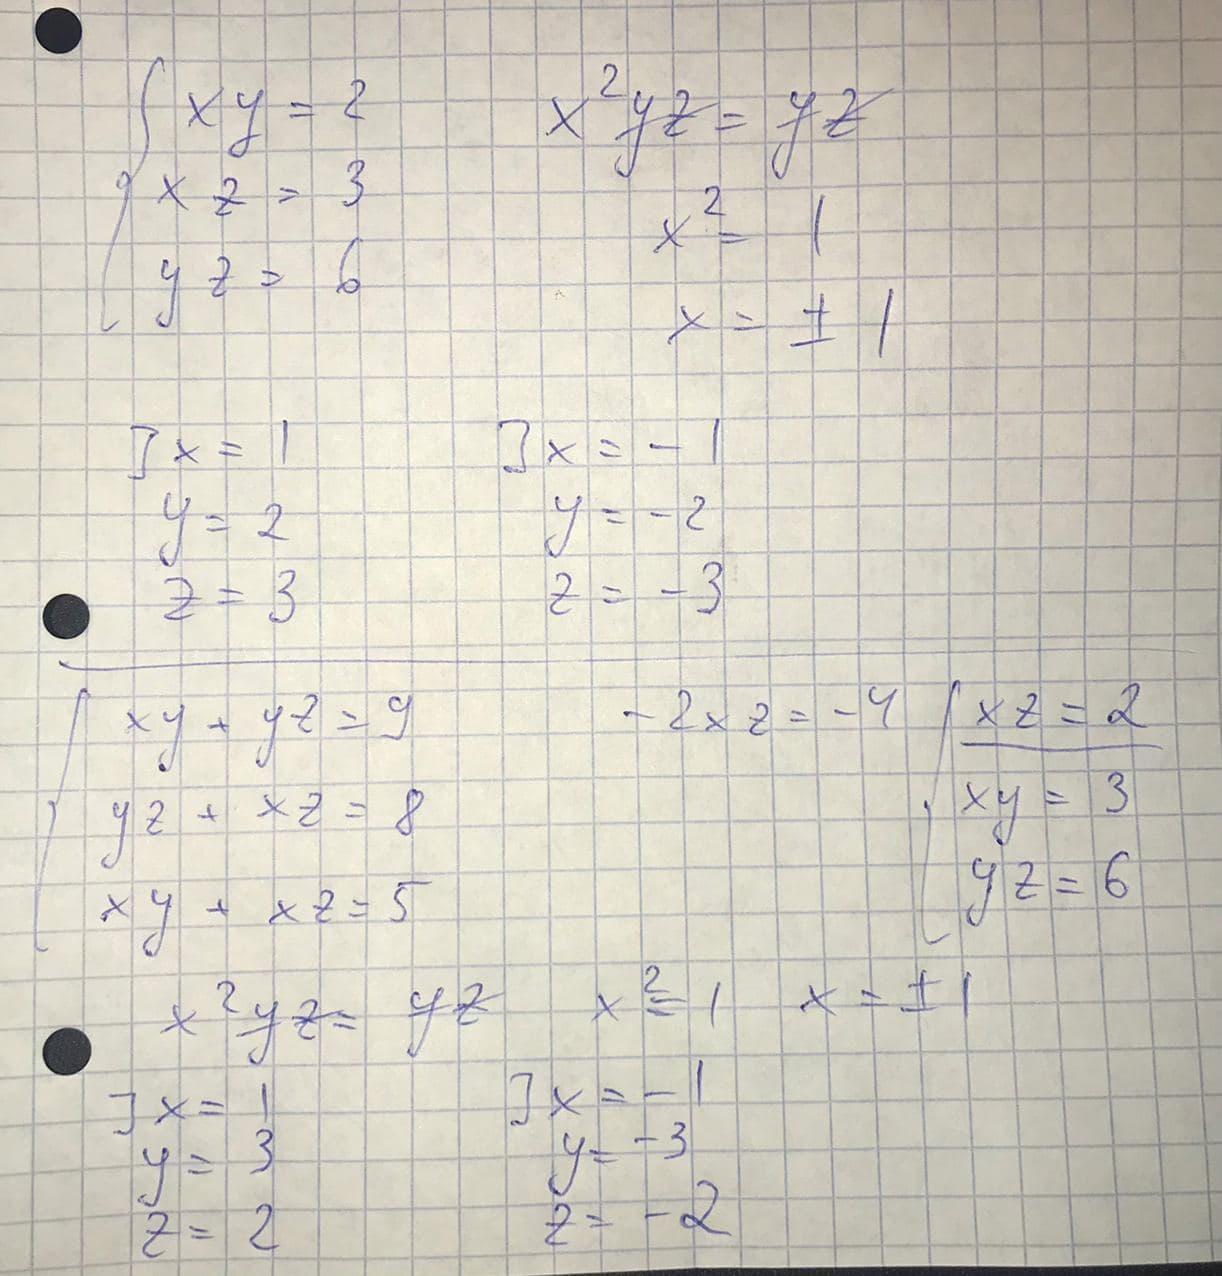 xy = 2
xz = 3
yz = 6
x²yz = yz
x² = 1
x = ± 1
] x = 1
y = 2
z = 3
] x = - 1
y = - 2
z = - 3
xy + yz = 9
yz + xz = 8
xy + xz = 5
- 2xz = - 4
xz = 2
xy = 3
yz = 6
x²yz = yz
x² = 1
x = ± 1
] x = 1
y = 3
z = 2
] x = - 1
y = - 3
z = - 2